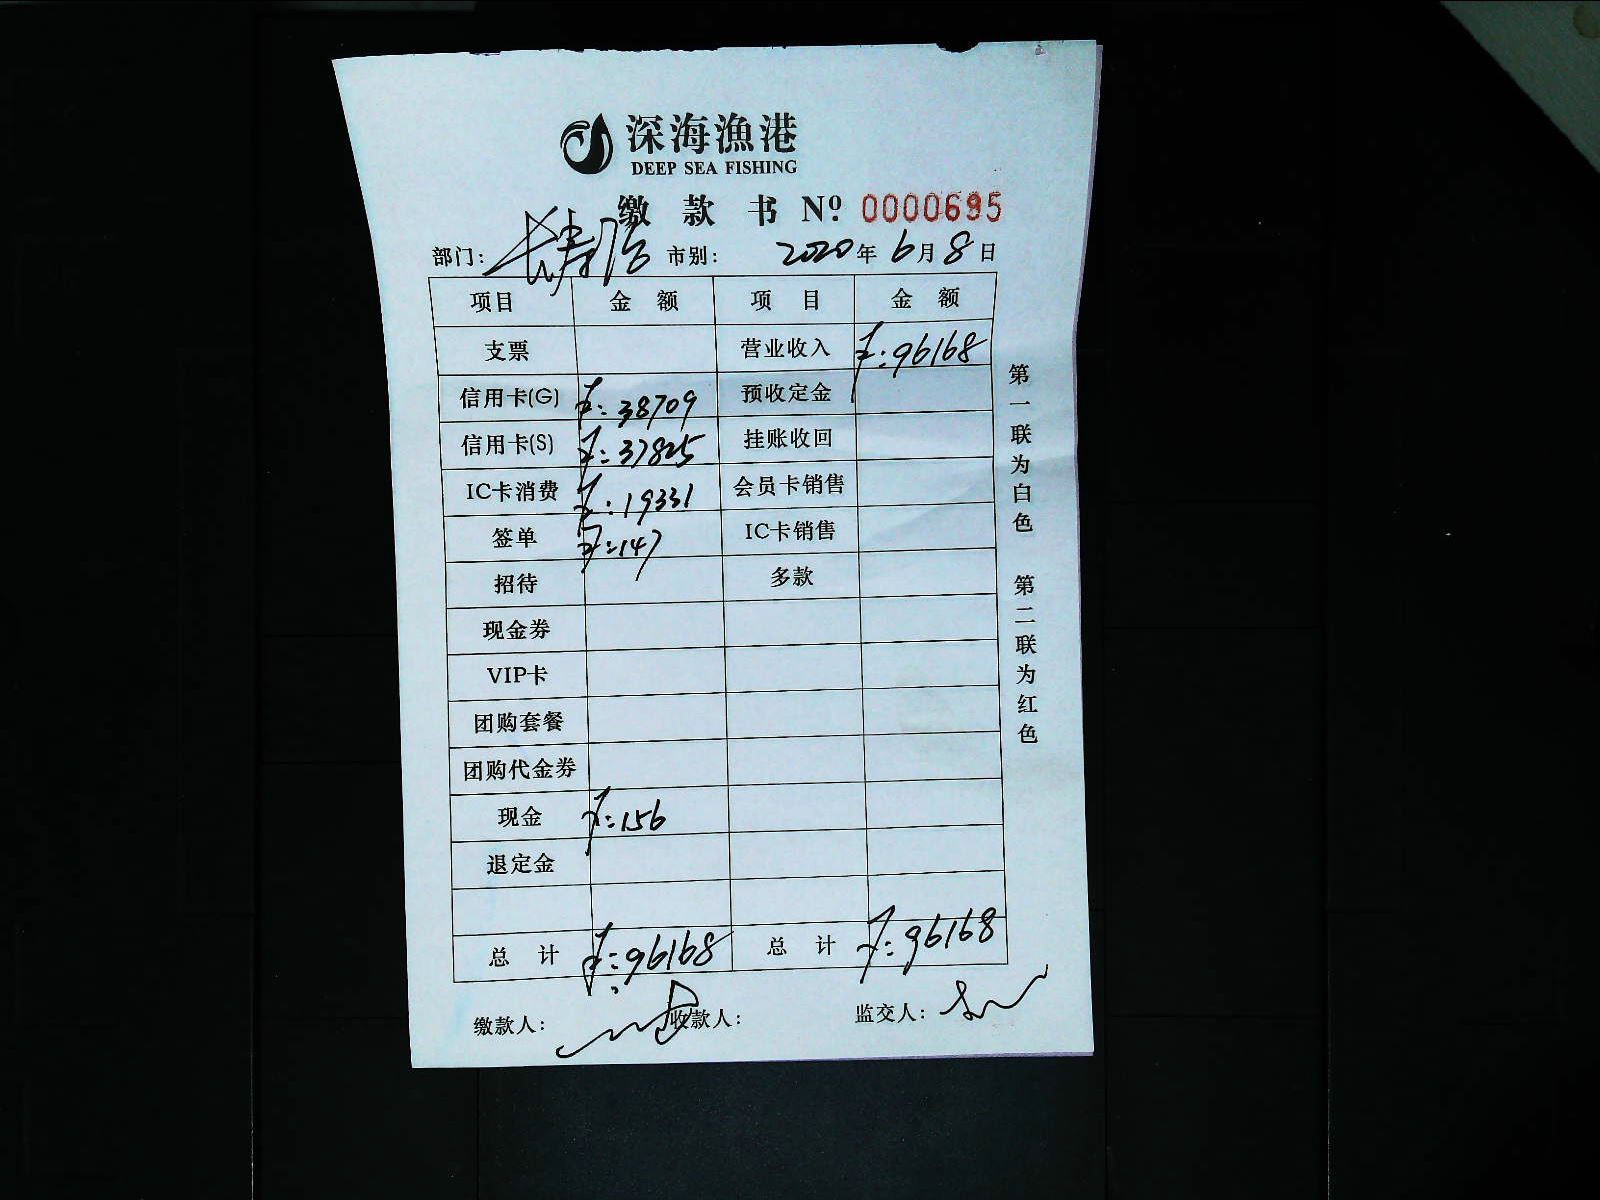 深海漁港
DEEP SEA FISHING
缴款书 Nº 0000695
部门: 长寿路 市别: 2020年6月8日
项目 金额 项目 金额
支票 营业收入 ¥:96168
信用卡(G) ¥:38709 预收定金
信用卡(S) ¥:37825 挂账收回
IC卡消费 ¥:19331 会员卡销售
签单 ¥:147 IC卡销售
招待 多款
现金券
VIP卡
团购套餐
团购代金券
现金 ¥:156
退定金
总计 ¥:96168 总计 ¥:96168
缴款人: 收款人: 监交人:
第一联为白色 第二联为红色